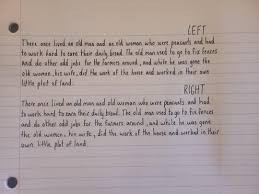 LEFT
There once lived an old man and an old woman who were peasants and had
to work hard to earn their daily bread. The old man used to go to fix fences
and do other odd jobs for the farmers around, and while he was gone the
old woman, his wife, did the work of the house and worked in their own
little plot of land.
RIGHT
There once lived an old man and old woman who were peasants and had
to work hard to earn their daily bread. The old man used to go to fix fences
and do other odd jobs for the farmers around, and while he was gone
the old woman, his wife, did the work of the house and worked in their
own little plot of land.